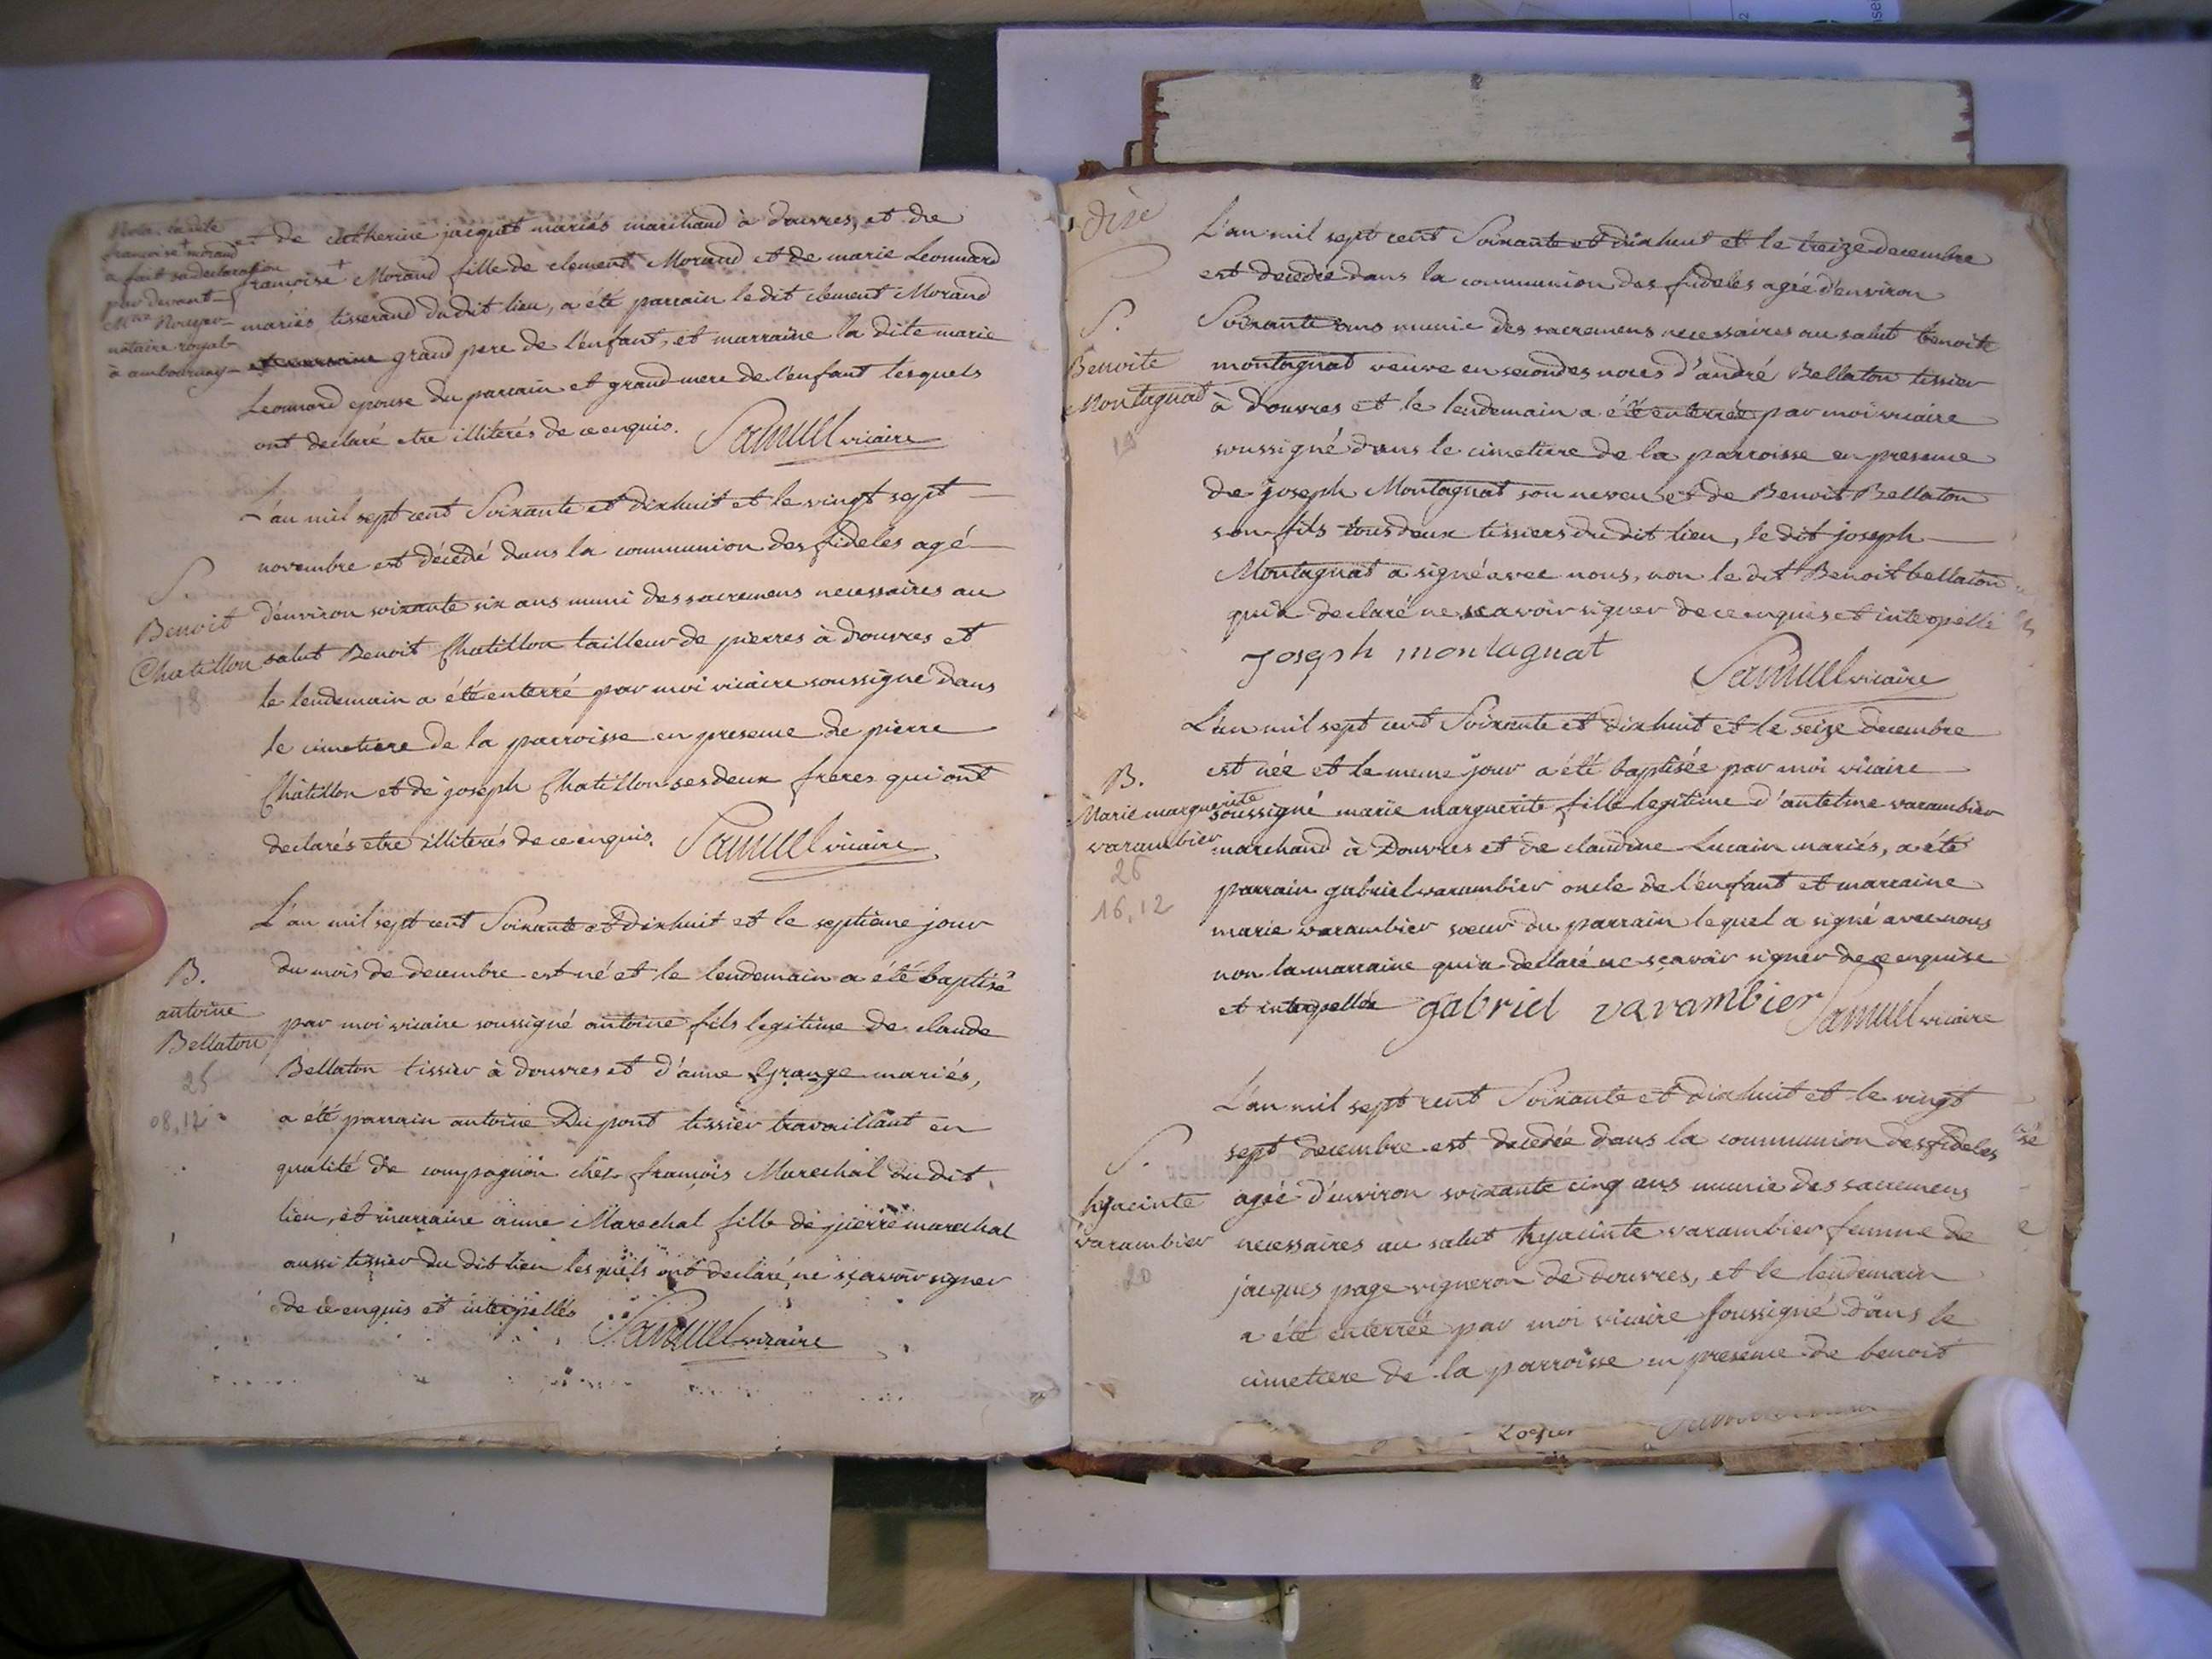 Nota. la dte
françoise morand
a fait sa declaration
par devant
Mre
notaire royal
à ambournay
et de catherine jacquet mariés marchand à douvres, et de
françoise + Morand fille de clement Morand et de marie Leonnard
mariés tisserand du dit lieu, a été parrain le dit clement Morand
grand pere de l'enfant, et marraine la dite marie
Leonnard epouse du parrain et grand mere de l'enfant lesquels
ont declaré etre illiterés de ce enquis. Samuel vicaire
L'an mil sept cent Soixante et dixhuit et le vingt sept
novembre est décedé dans la communion des fideles agé
d'environ soixante six ans muni des sacremens necessaires au
salut Benoit Chatillon tailleur de pierres à douvres et
le lendemain a été enterré par moi vicaire soussigné dans
le cimetiere de la parroisse en presence de pierre
Chatillon et de joseph Chatillon ses deux freres qui ont
declarés etre illiterés de ce enquis. Samuel vicaire
S.
Benoit
Chatillon
18
L'an mil sept cent Soixante et dixhuit et le septieme jour
du mois de decembre est né et le lendemain a été baptisé
par moi vicaire soussigné antoine fils legitime de claude
Bellaton tissier à douvres et d'anne Grange mariés,
a été parrain antoine Dupont tissier travaillant en
qualité de compagnon chés françois Marechal du dit
lieu, et marraine anne Marechal fille de pierre marechal
aussi tissier du dit lieu lesquels ont declaré ne sçavoir signer
de ce enquis et interpellés Samuel vicaire
B.
antoine
Bellaton
25
08,12
dixe
L'an mil sept cent Soixante et dixhuit et le treize decembre
est decedée dans la communion des fideles agée d'environ
Soixante ans munie des sacremens necessaires au salut benoite
montagnat veuve en secondes noces d'andré Bellaton tissier
à douvres et le lendemain a été enterrée par moi vicaire
soussigné dans le cimetiere de la parroisse en presence
de joseph Montagnat son neveu et de Benoit Bellaton
son fils tous deux tissiers du dit lieu, le dit joseph
Montagnat a signé avec nous, non le dit Benoit bellaton
qui a declaré ne scavoir signer de ce enquis et interpellé
Joseph montagnat
Samuel vicaire
S.
Benoite
Montagnat
19
L'an mil sept cent Soixante et dixhuit et le seize decembre
est née et le meme jour a été baptisée par moi vicaire
soussigné marie marguerite fille legitime d'antelme varambier
marchand à Douvres et de claudine Lucain mariés, a été
parrain gabriel varambier oncle de l'enfant et marraine
marie varambier soeur du parrain lequel a signé avec nous
non la marraine qui a declaré ne sçavoir signer de ce enquise
et interpellée gabriel varambier Samuel vicaire
B.
Marie marguerite
varambier
26
16,12
L'an mil sept cent Soixante et dixhuit et le vingt
sept decembre est decedée dans la communion des fideles
agée d'environ soixante cinq ans munie des sacremens
necessaires au salut hyacinte varambier femme de
jacques page vigneron de douvres, et le lendemain
a été enterrée par moi vicaire soussigné dans le
cimetiere de la parroisse en presence de benoit
S.
hyacinte
varambier
20